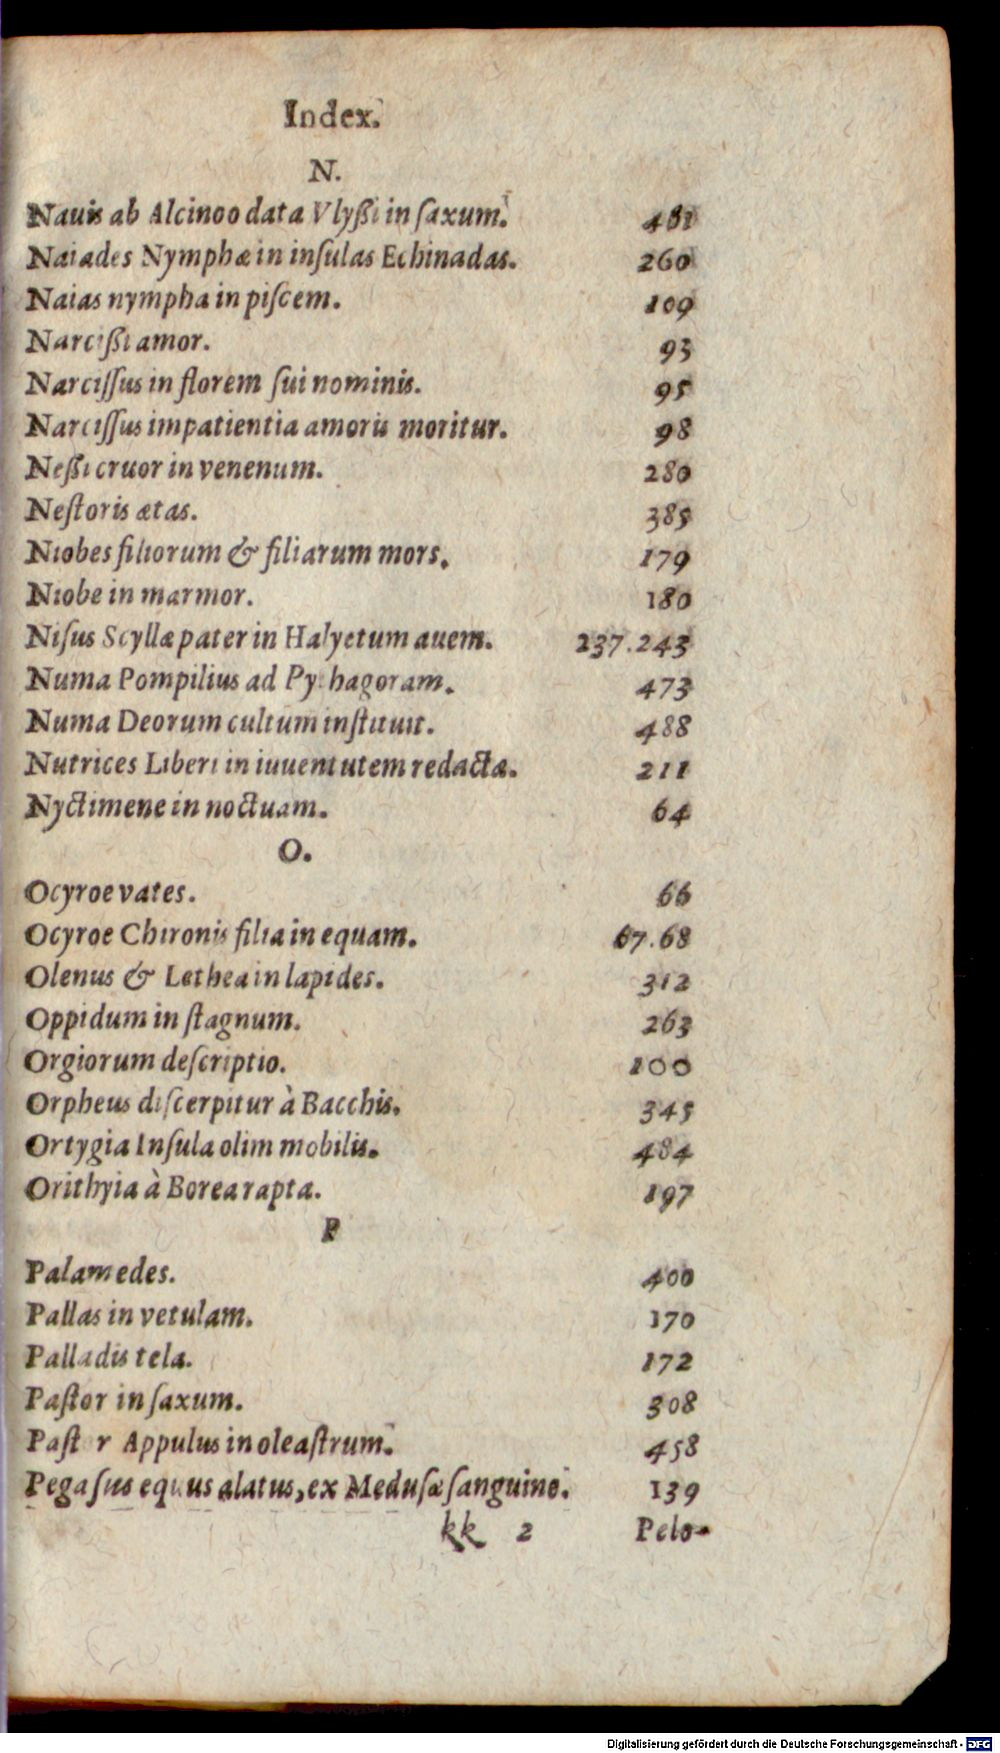 Index.
N.
Nauis ab Alcinoo data Vlyßi in ſaxum. 481
Naiades Nymphæ in inſulas Echinadas. 260
Naias nympha in piſcem. 109
Narcißi amor. 93
Narciſſus in florem ſui nominis. 95
Narciſſus impatientia amoris moritur. 98
Neßi cruor in venenum. 280
Neſtoris ætas. 385
Niobes filiorum & filiarum mors. 179
Niobe in marmor. 180
Niſus Scyllæ pater in Halyetum auem. 237.243
Numa Pompilius ad Pythagoram. 473
Numa Deorum cultum inſtituit. 488
Nutrices Liberi in iuuentutem redactæ. 211
Nyctimene in noctuam. 64
O.
Ocyroe vates. 66
Ocyroe Chironis filia in equam. 67.68
Olenus & Lethea in lapides. 312
Oppidum in ſtagnum. 263
Orgiorum deſcriptio. 100
Orpheus diſcerpitur à Bacchis. 345
Ortygia Inſula olim mobilis. 484
Orithyia à Borea rapta. 197
P
Palamedes. 400
Pallas in vetulam. 170
Palladis tela. 172
Paſtor in ſaxum. 308
Paſt r Appulus in oleaſtrum. 458
Pegaſus equus alatus, ex Meduſæ ſanguine. 139
kk 2 Pelo-
Digitalisierung gefördert durch die Deutsche Forschungsgemeinschaft - DFG